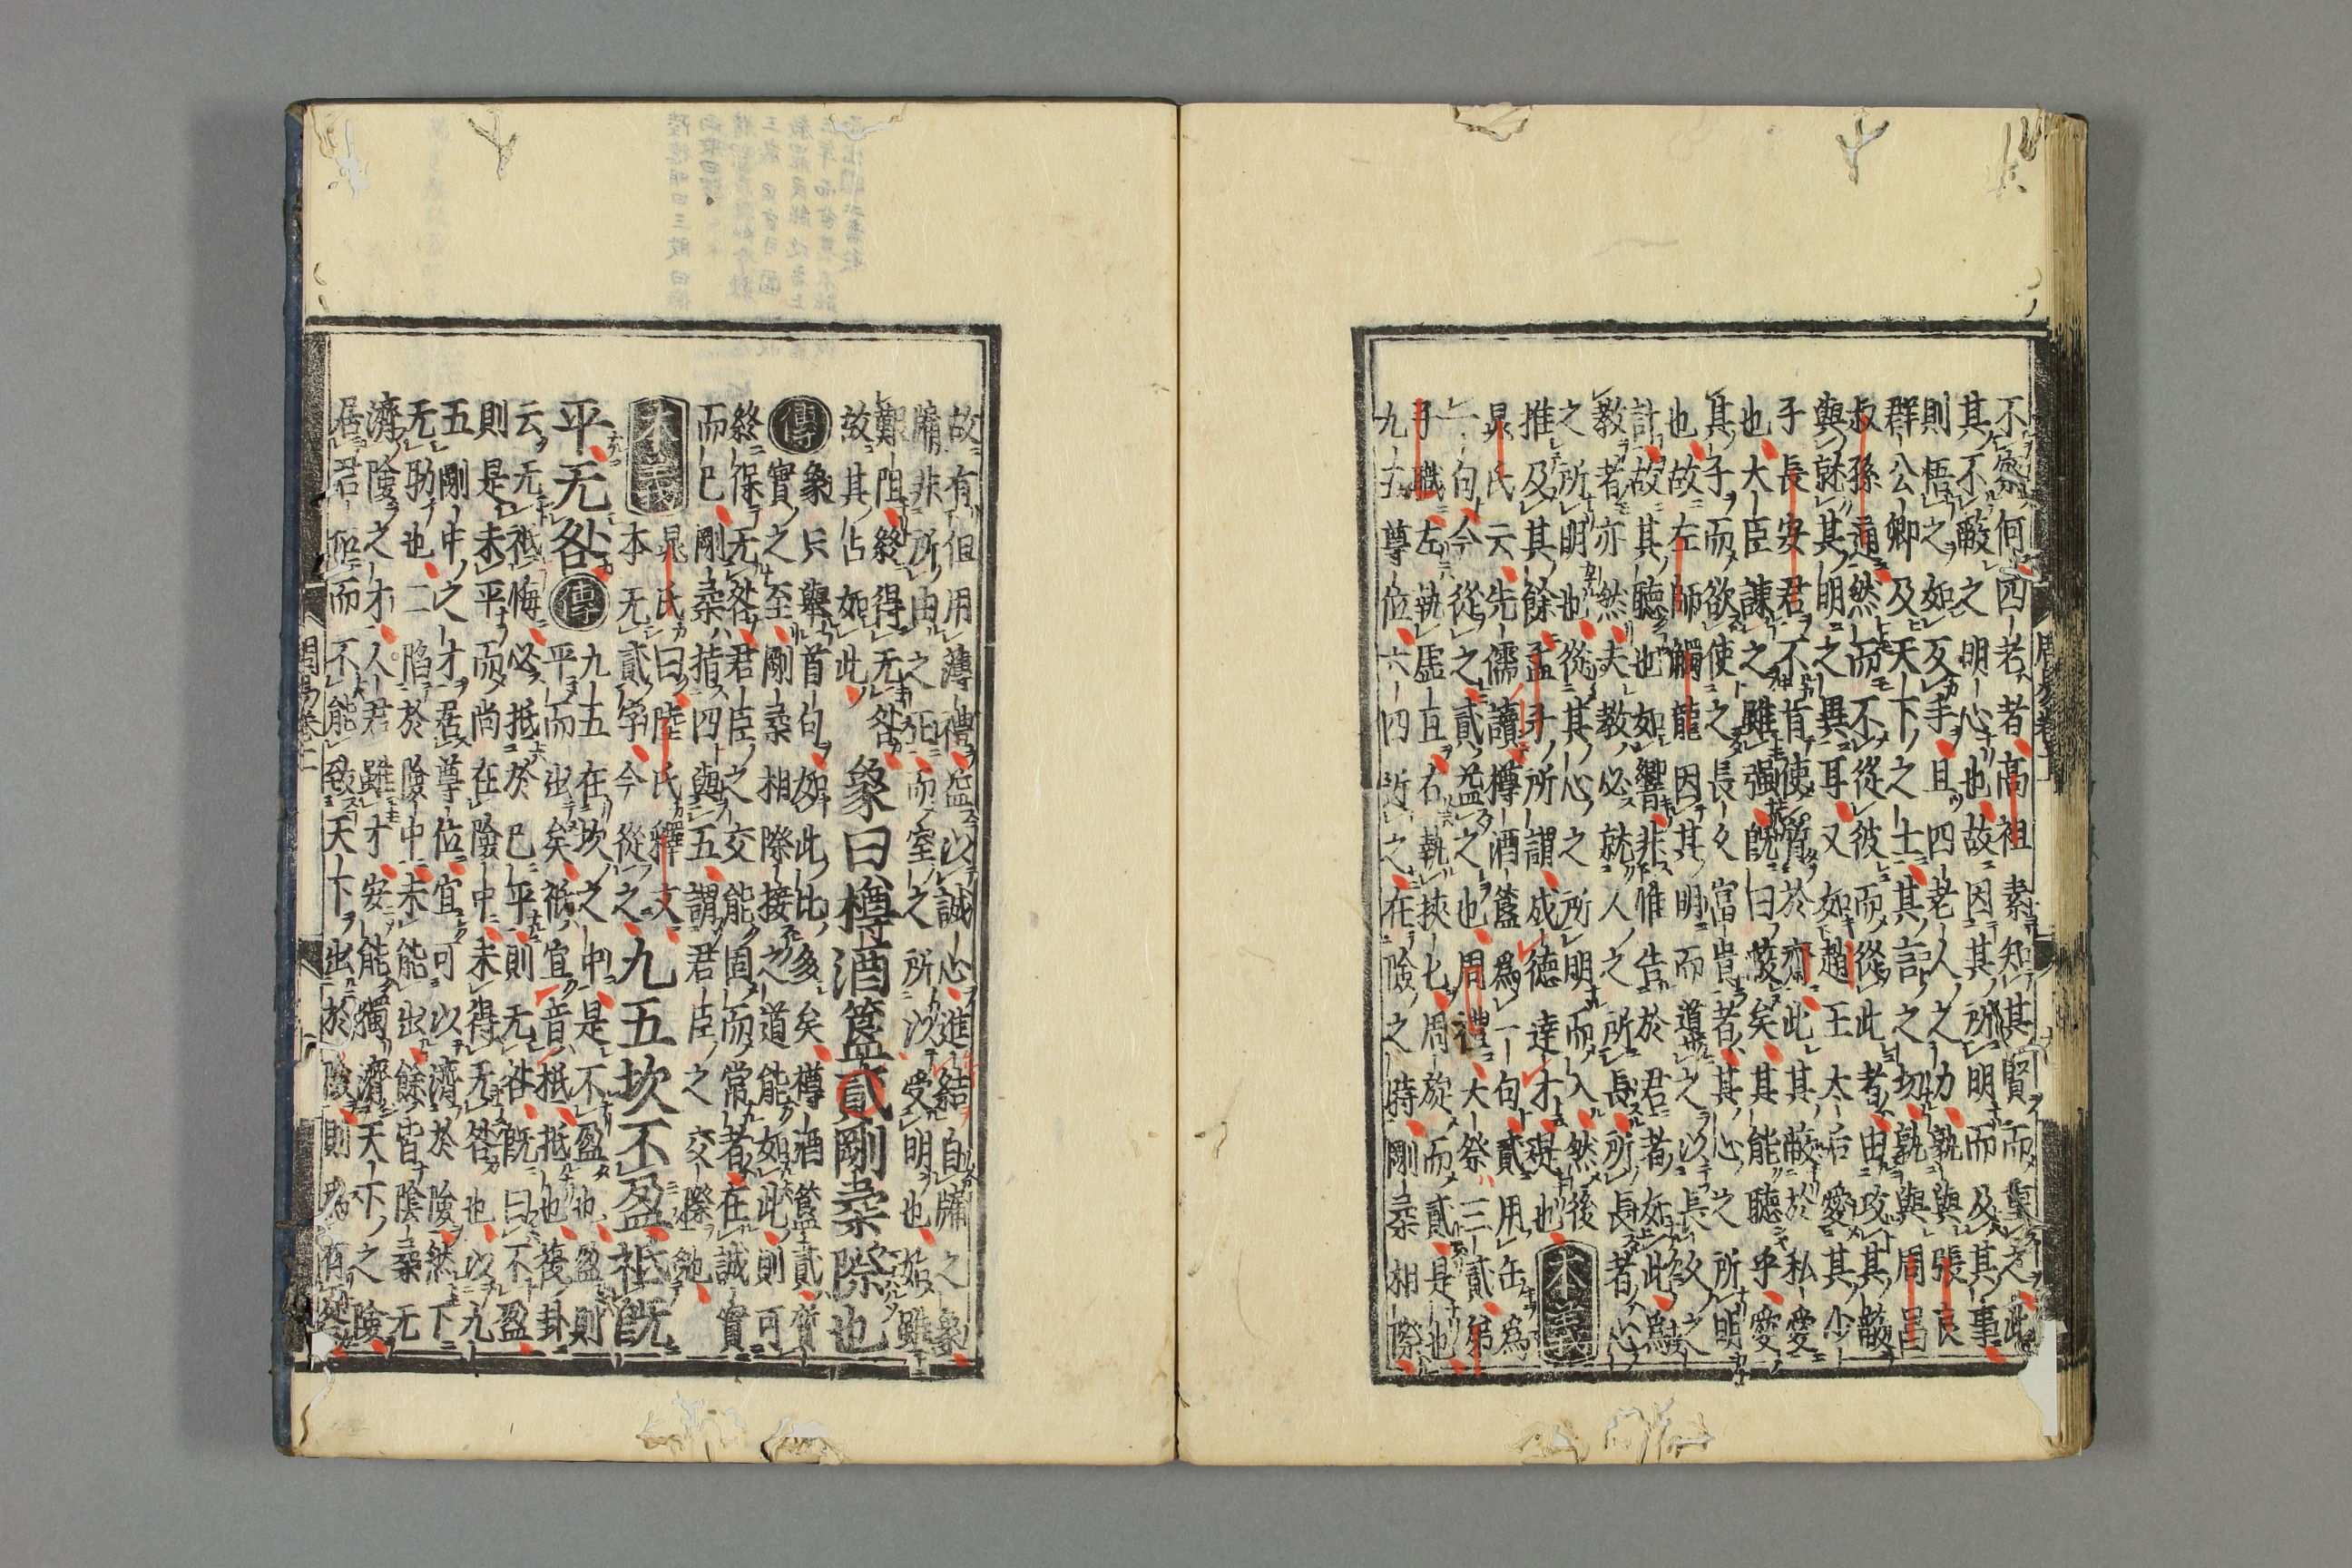 周易卷十一
不察何四老者高祖素知其賢而重之此
其不蔽之明心也故因其所明而及其事
則悟之如反手且四老人之力孰與張良
群公卿及天下之士其言之切孰與周昌
叔孫通然而不從彼而從此者由攻其蔽
與就其明之異耳又如趙王太后愛其少
子長安君不肯使質於齊此其蔽於私愛
也大臣諫之雖强旣曰蔽矣其能聽乎愛
其子而欲使之長久富貴者其心之所明
也故左師觸龍因其明而導之以長久之
計故其聽也如響非惟告於君者如此爲
教者亦然夫教必就人之所長所長者心
之所明也從其心之所明而入然後
推及其餘孟子所謂成德達才是也 本義
晁氏云先儒讀樽酒簋爲一句貳用缶爲
一句今從之貳益之也周禮大祭三貳弟
子職左執虛豆右執挾匕周旋而貳是也
九五尊位六四近之在險之時剛柔相際
故有但用薄禮益以誠心進結自牖之象
牖非所由之正而室之所以受明也始雖
艱阻終得无咎
故其占如此
象曰樽酒簋貳剛柔際也
傳 象只舉首句如此比多矣樽酒簋貳質
實之至剛柔相際接之道能如此則可
終保无咎君臣之交能固而常者在誠實
而已剛柔指四與五謂君臣之交際也
本義 晁氏曰陸氏釋文
本无貳字今從之
九五坎不盈祗旣
平无咎
傳 九五在坎之中是不盈也盈則
平而出矣祗宜音柢抵也復卦
云无祗悔必抵於已平則无咎旣曰不盈
則是未平而尚在險中未得无咎也以九
五剛中之才居尊位宜可以濟於險然下
无助也二陷於險中未能出餘皆陰柔无
濟險之才人君雖才安能獨濟天下之險
居君位而不能致天下出於險則爲有咎
周易卷十一